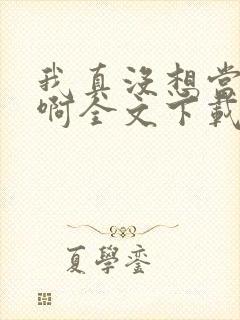 我真没想当
啊全文下载
夏學銮